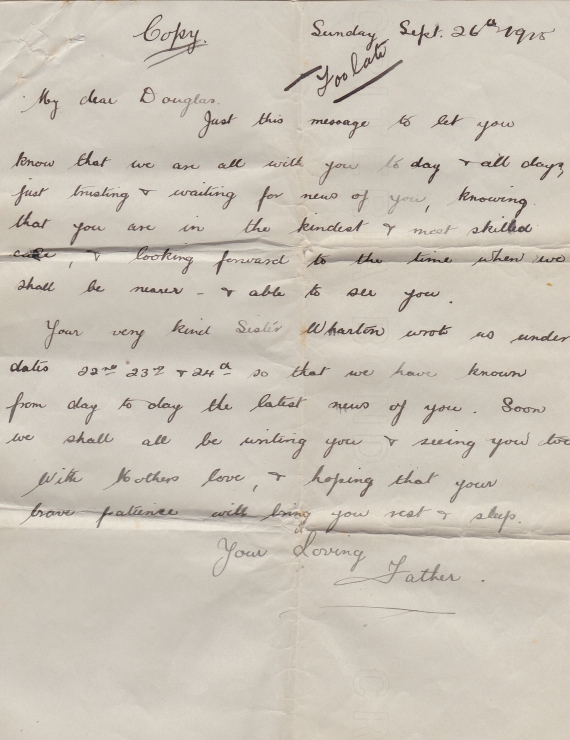 Copy. Sunday Sept. 26th 1915
Too late
My dear Douglas.
Just this message to let you
know that we are all with you to day & all days,
just trusting & waiting for news of you, knowing
that you are in the kindest & most skilled
care, & looking forward to the time when we
shall be nearer - & able to see you.
Your very kind Sister Wharton wrote us under
dates 22nd 23rd & 24th so that we have known
from day to day the latest news of you. Soon
we shall all be writing you & seeing you too
With Mothers love, & hoping that your
brave patience will bring you rest & sleep.
Your Loving
Father.